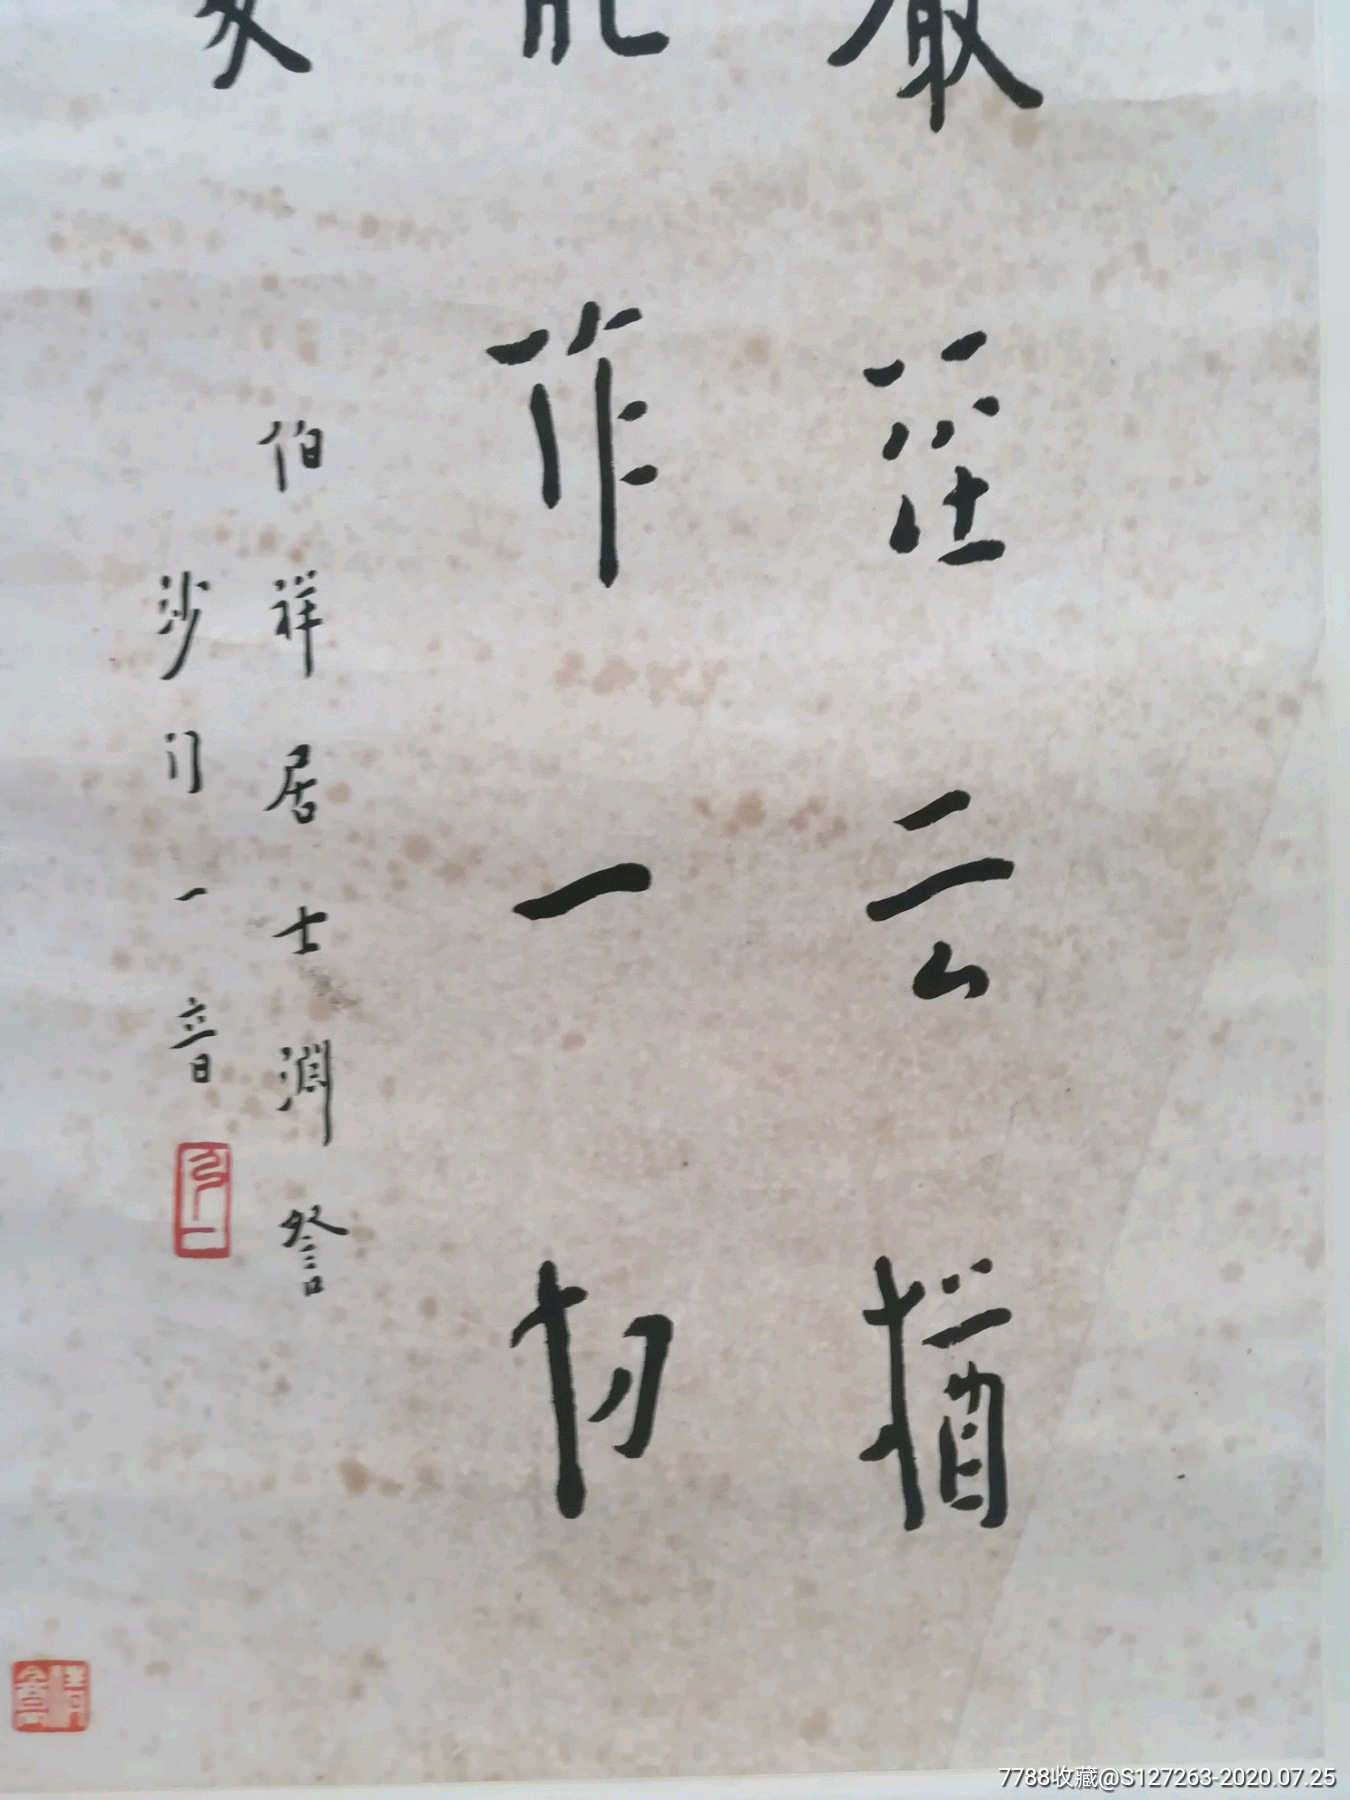 嚴經云猶
能作一切
伯祥居士淵詧
沙门一音
弘一
7788收藏@S127263-2020.07.25